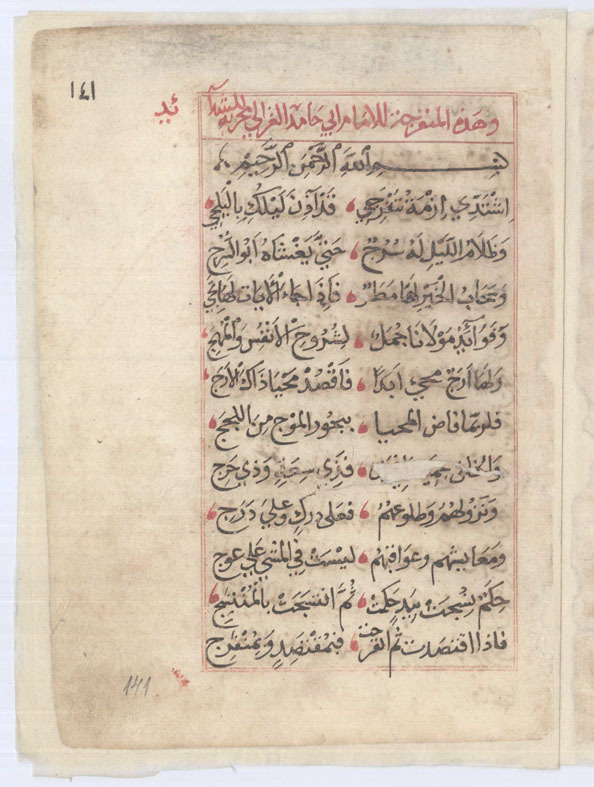 ١٤١
وهذه المنفرجة للامام ابي حامد الغزالي
بسم الله الرحمن الرحيم
اشتدي ازمة تنفرجي قد آذن ليلك بالبلجي
وظلام الليل له سرج حتي يغشاه ابو السرج
وسحاب الخير لها مطر فاذا جاء الابان لها تجي
وفوائد مولانا جمل لشروح الانفس والمهج
ولها ارج محي ابدا فاقصد محيا ذاك الارج
فلربما فاض المحيا ببحور الموج من اللجج
والخلق جميعا في فذي سعة وذي حرج
ونزولهم وطلوعهم فعلي درك وعلي درج
ومعايشهم وعواقبهم ليست في المشي علي عوج
حكم نسجت بيد حكمت ثم انتسجت بالمنتسج
فاذا اقتصدت ثم انفرجت فبمقتصد وبمنفرج
141